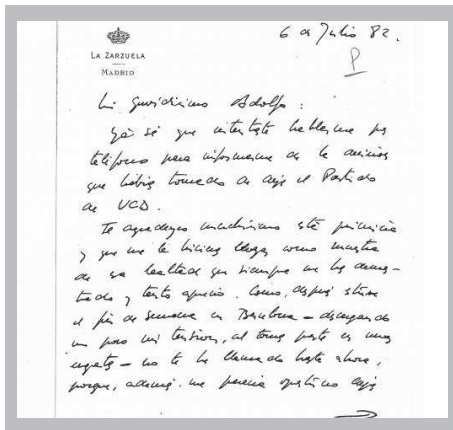 6 de Julio 82.
P
LA ZARZUELA
MADRID
Mi queridísimo Adolfo:
Ya sé que intentaste hablarme por
teléfono para informarme de la decisión
que habías tomado de dejar el Partido
de UCD.
Te agradezco muchísimo esta primicia
y que me la hicieras llegar como muestra
de esa lealtad que siempre me has demos-
trado y tanto aprecio. Como, después estuve
el fin de semana en Barcelona – descargando
un poco mi tensión, al tomar parte en unas
regatas – no te he llamado hasta ahora,
porque, además, me parecía oportuno dejar